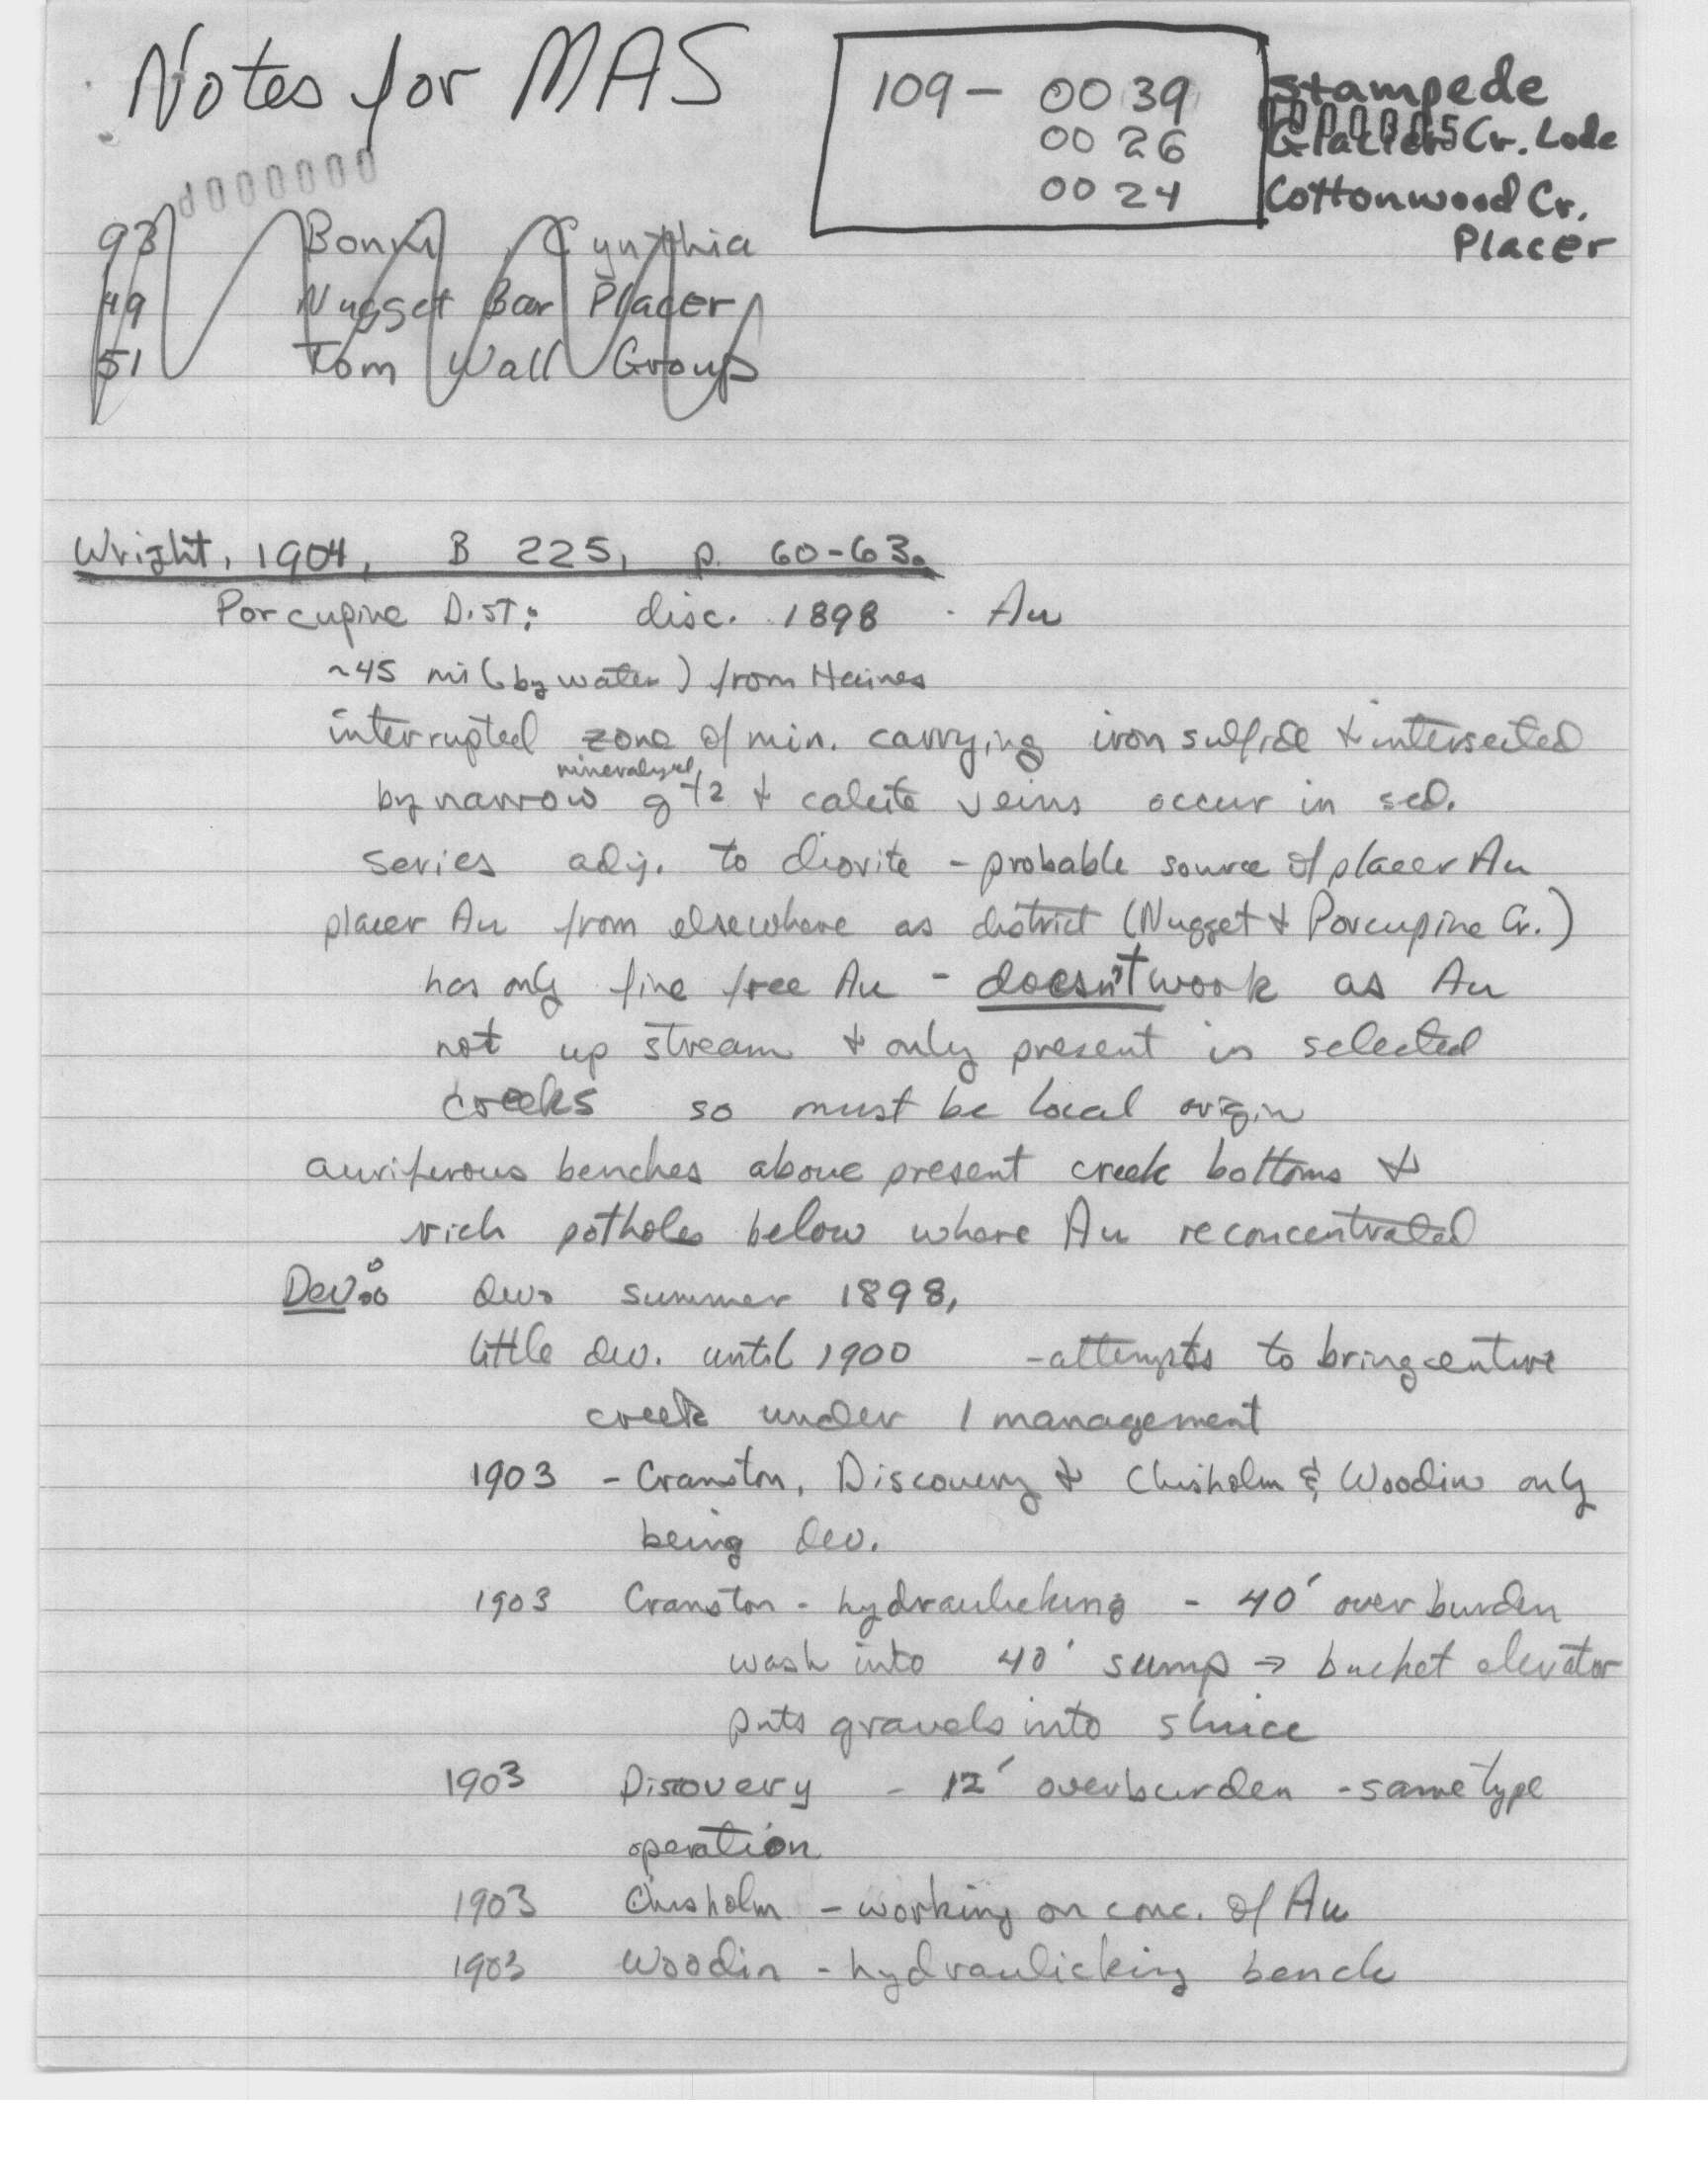 Notes for MAS
109- 0039 Stampede
0026 Glacier Cr. Lode
0024 Cottonwood Cr.
Placer
93 Cynthia
49 Nugget Bar Placer
51 Tom Wall Group
Wright, 1904, B 225, p. 60-63.
Porcupine Dist: disc. 1898 - Au
~45 mi (by water) from Haines
interrupted zone of min. carrying iron sulfide & intersected
mineralized
by narrow qtz & calcite veins occur in sed.
series adj. to diorite - probable source of placer Au
placer Au from elsewhere as district (Nugget & Porcupine Cr.)
has only fine free Au - doesn't work as Au
not up stream & only present in selected
creeks so must be local origin
auriferous benches above present creek bottoms &
rich potholes below where Au reconcentrated
Dev: summer 1898,
little dev. until 1900 - attempts to bring entire
creek under 1 management
1903 - Cranston, Discovery & Chisholm & Woodin only
being dev.
1903 Cranston - hydraulicking - 40' overburden
wash into 40' sump → bucket elevator
puts gravels into sluice
1903 Discovery - 12' overburden - same type
operation
1903 Chisholm - working on conc. of Au
1903 Woodin - hydraulicking bench